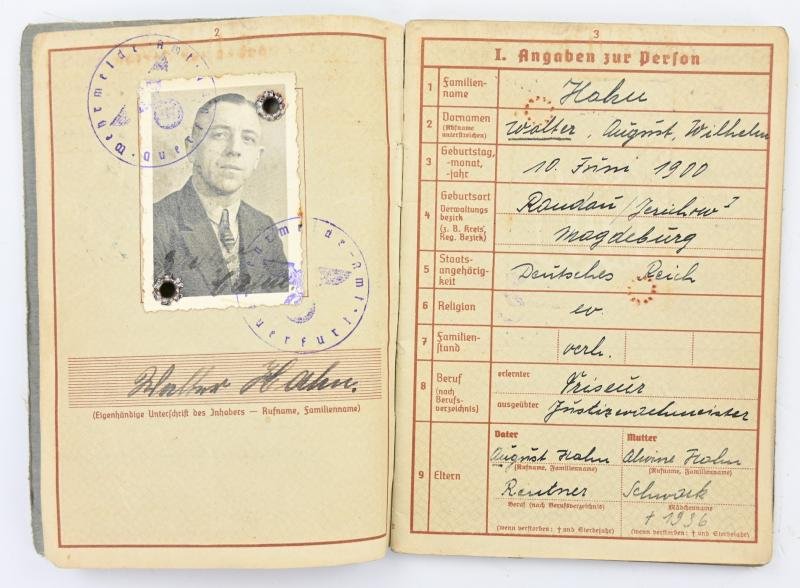 2
Wehrmelde-Amt
Querfurt
Wehrmelde-Amt
Querfurt
Walter Hahn.
(Eigenhändige Unterschrift des Inhabers — Rufname, Familienname)
3
I. Angaben zur Person
1 Familien-
name
Hahn
2 Vornamen
(Rufname
unterstreichen)
Walter, August, Wilhelm
3 Geburtstag,
-monat,
-jahr
10. Juni 1900
4 Geburtsort
Verwaltungs-
bezirk
(z. B. Kreis,
Reg. Bezirk)
Randau / Jerichow I
Magdeburg
5 Staats-
angehörig-
keit
Deutsches Reich
6 Religion
ev.
7 Familien-
stand
verh.
8 Beruf
(nach
Berufs-
verzeichnis)
erlernter
Friseur
ausgeübter
Justizwachmeister
9 Eltern
Vater Mutter
August Hahn Alwine Hahn
(Rufname, Familienname) (Rufname, Familienname)
Rentner
Beruf (nach Berufsverzeichnis) Mädchenname
† 1936
(wenn verstorben: † und Sterbejahr) (wenn verstorben: † und Sterbejahr)